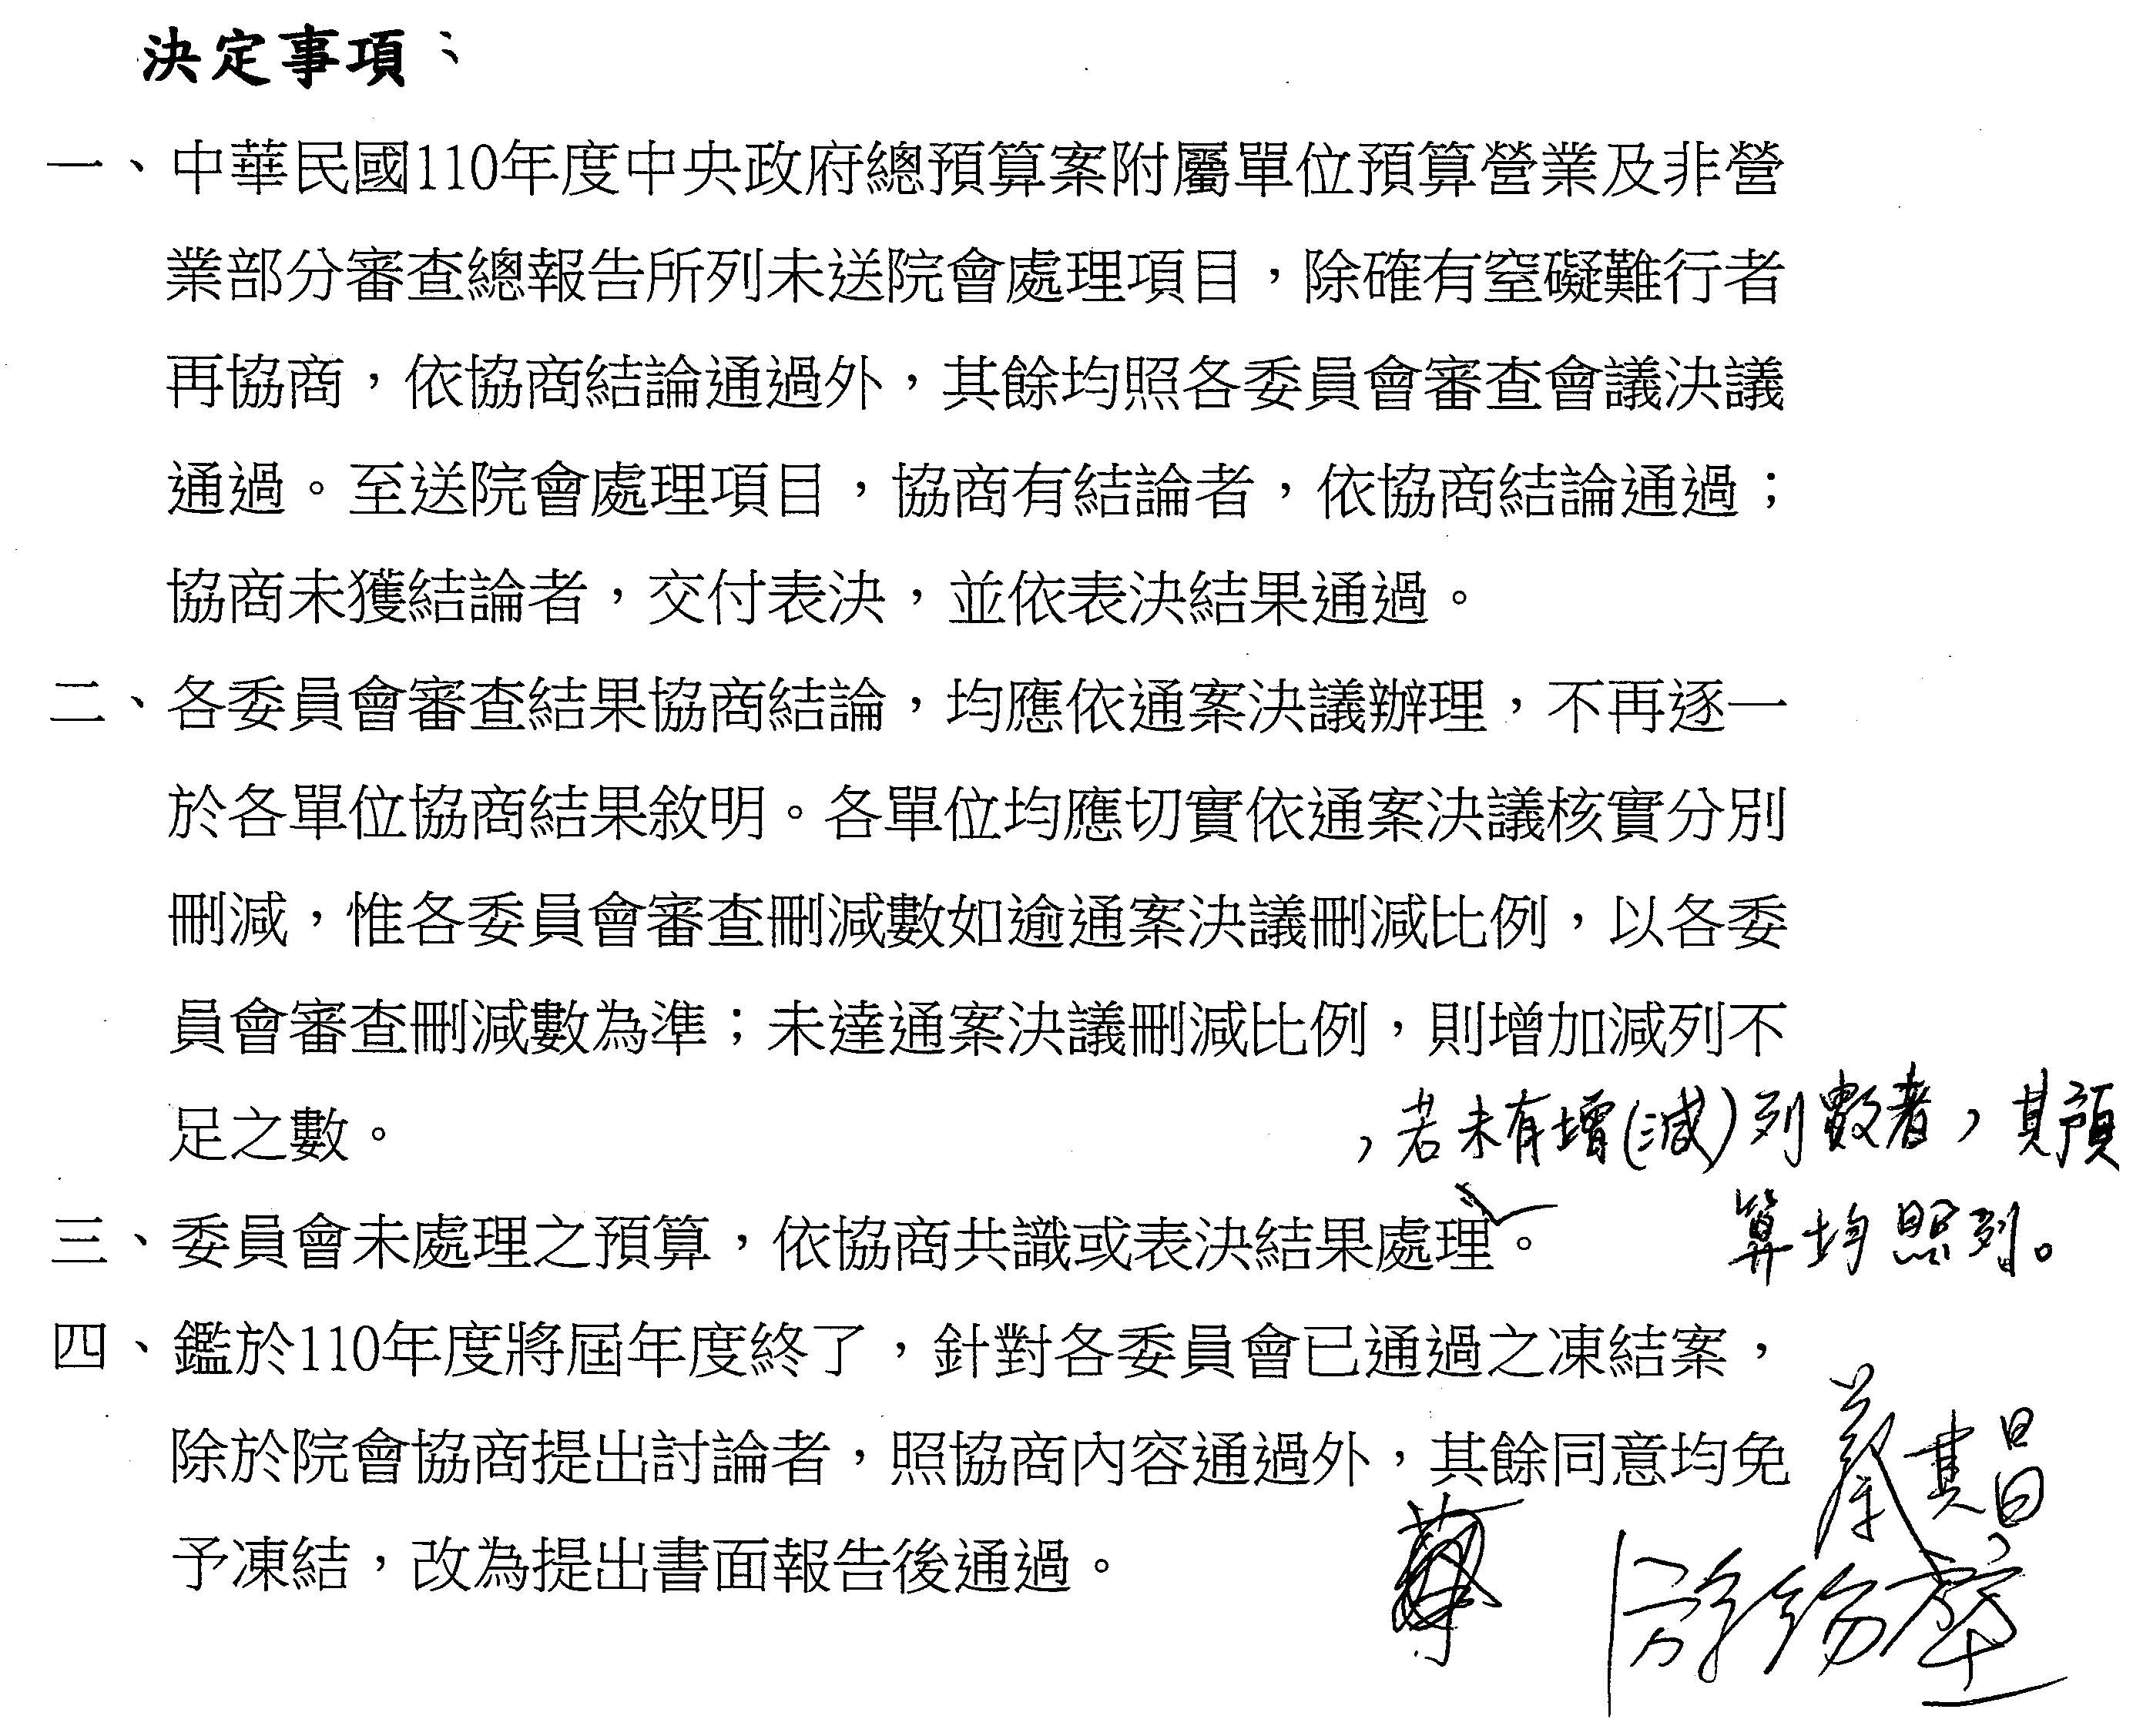 決定事項：
一、中華民國110年度中央政府總預算案附屬單位預算營業及非營
業部分審查總報告所列未送院會處理項目，除確有窒礙難行者
再協商，依協商結論通過外，其餘均照各委員會審查會議決議
通過。至送院會處理項目，協商有結論者，依協商結論通過；
協商未獲結論者，交付表決，並依表決結果通過。
二、各委員會審查結果協商結論，均應依通案決議辦理，不再逐一
於各單位協商結果敘明。各單位均應切實依通案決議核實分別
刪減，惟各委員會審查刪減數如逾通案決議刪減比例，以各委
員會審查刪減數為準；未達通案決議刪減比例，則增加減列不
足之數。
三、委員會未處理之預算，依協商共識或表決結果處理。
，若未有增(減)列數者，其預
算均照列。
四、鑑於110年度將屆年度終了，針對各委員會已通過之凍結案，
除於院會協商提出討論者，照協商內容通過外，其餘同意均免
予凍結，改為提出書面報告後通過。
蔡其昌